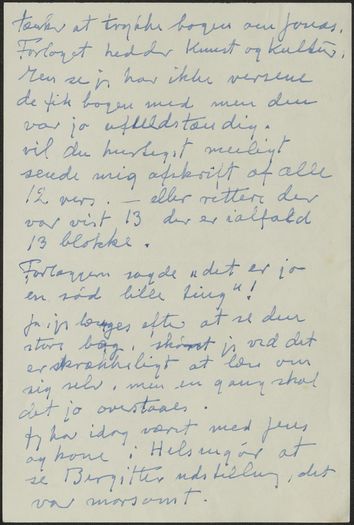 tænker at trykke bogen om Jonas.
Forlaget hedder Kunst og Kultur.
Men se jeg har ikke versene
de fik bogen med men den
var jo ufuldstændig.
vil du hurtigst muligt
sende mig afskrift af alle
12 vers. — eller rettere der
var vist 13 der er ialfald
13 blokke.
Forlæggeren sagde „det er jo
en sød lille ting"!
Ja jeg længes efter at se den
store bog, skønt jeg ved det
er skrækkeligt at læse om
sig selv, men en gang skal
det jo overstaaes.
Jeg har idag været med Jens
og kone i Helsingør at
se Birgittes udstilling, det
var morsomt.